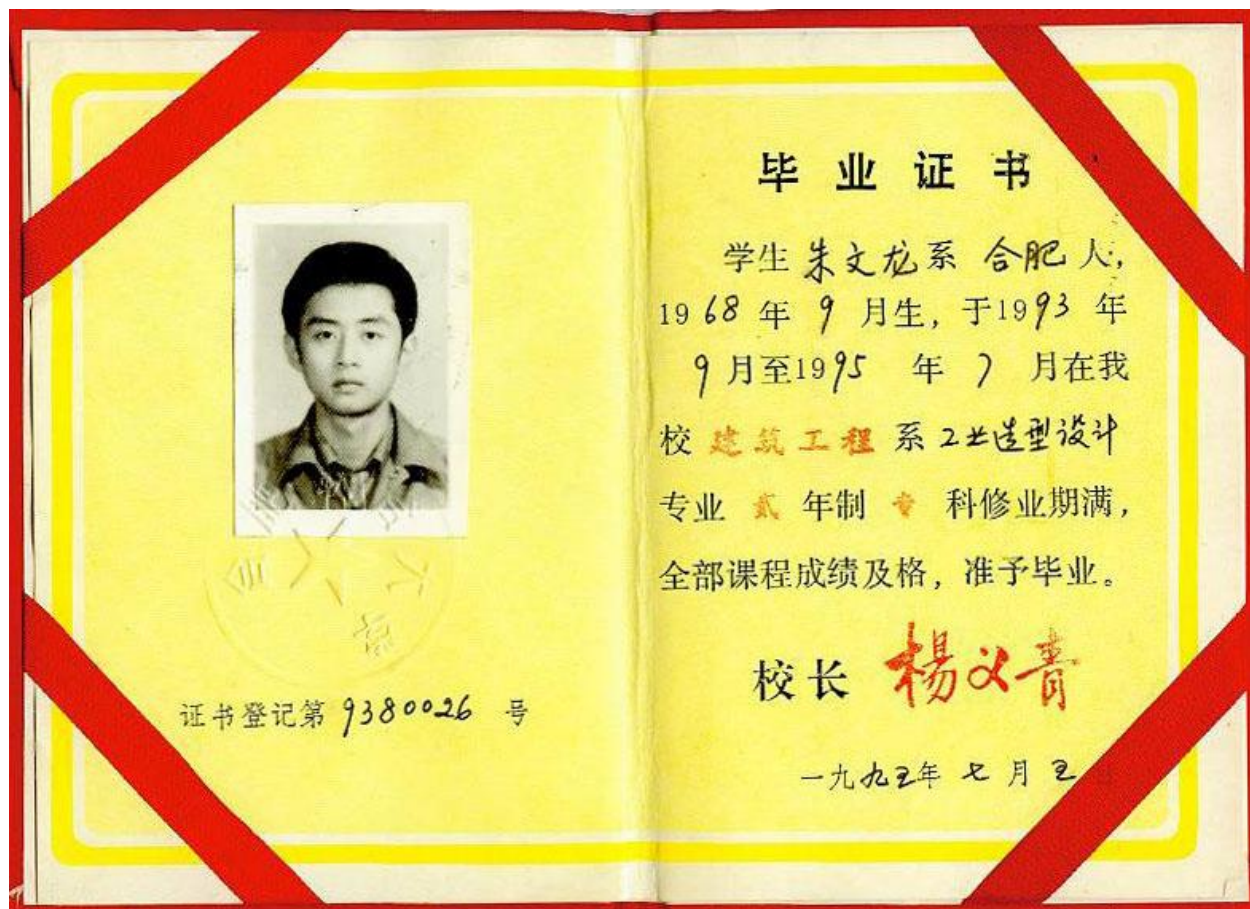 证书登记第 9380026 号
毕业证书
学生 朱文龙 系 合肥 人,
1968 年 9 月生, 于1993 年
9 月至1995 年 7 月在我
校 建筑工程 系 工业造型设计
专业 贰 年制 专 科修业期满,
全部课程成绩及格, 准予毕业。
校长 杨义青
一九九五年 七 月 五